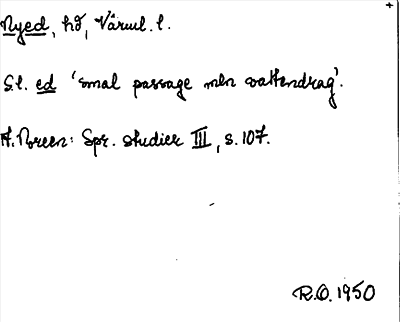 Nyed, hd, Värml. l.
S.l. ed 'smal passage mln vattendrag'.
A. Noreen: Spr. studier III, s. 107.
R.O. 1950